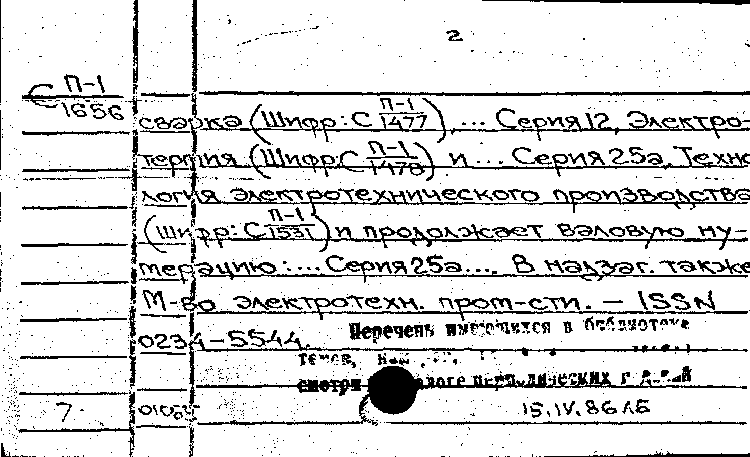 2
С П-1/1656
сварка (Шифр: С П-1/1477), ... Серия 12, Электро-
термия (Шифр: С П-1/1478) и ... Серия 25а, Техно
логия электротехнического производства
(Шифр: С П-1/1531) и продолжает валовую ну-
мерацию: ... Серия 25а.... В надзаг. также
М-во электротехн. пром-сти. – ISSN
0234-5544.
Перечень имеющихся в библиотеке
смотри периодических
7
15.IV.86